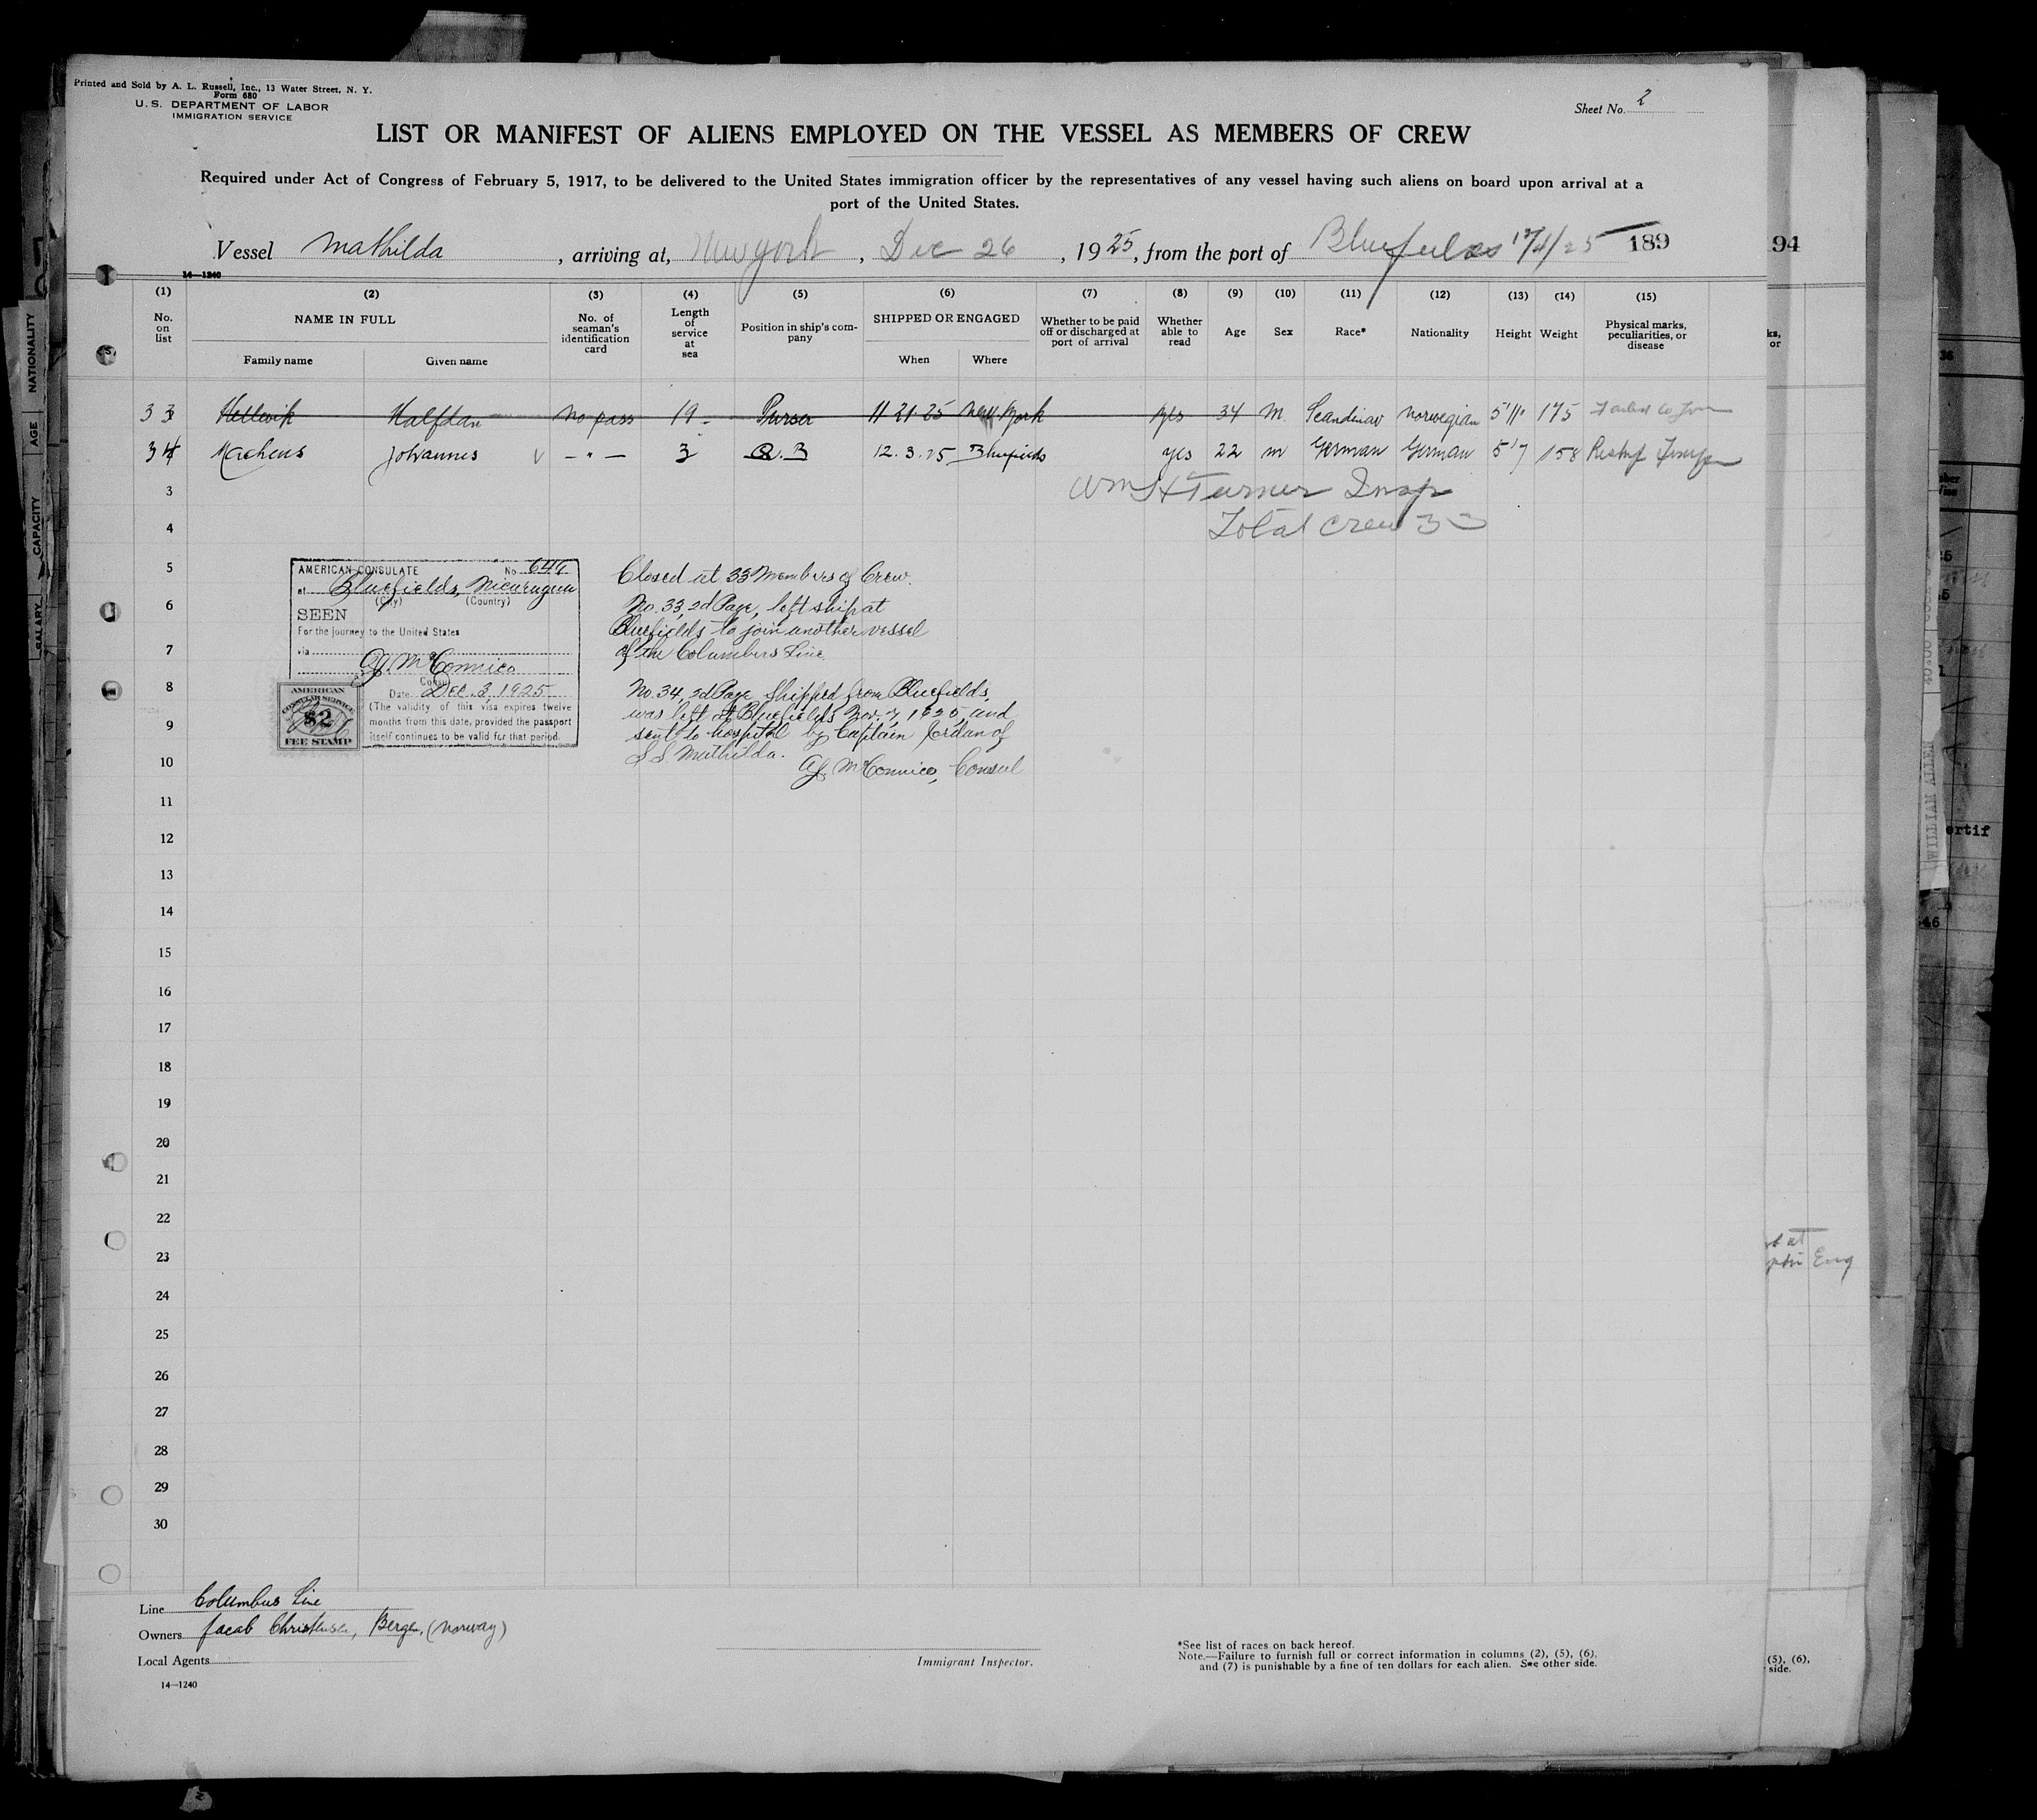 Printed and Sold by A. L. Russell, Inc., 13 Water Street, N. Y.
Form 680
U. S. DEPARTMENT OF LABOR
IMMIGRATION SERVICE
Sheet No. 2
LIST OR MANIFEST OF ALIENS EMPLOYED ON THE VESSEL AS MEMBERS OF CREW
Required under Act of Congress of February 5, 1917, to be delivered to the United States immigration officer by the representatives of any vessel having such aliens on board upon arrival at a
port of the United States.
Vessel Mathilda, arriving at, New York, Dec 26, 1925, from the port of Bluefields 12/4/25 189
94
14—1240
(1) (2) (3) (4) (5) (6) (7) (8) (9) (10) (11) (12) (13) (14) (15)
No. on list
NAME IN FULL
Family name
Given name
No. of seaman's identification card
Length of service at sea
Position in ship's company
SHIPPED OR ENGAGED
When
Where
Whether to be paid off or discharged at port of arrival
Whether able to read
Age
Sex
Race*
Nationality
Height
Weight
Physical marks, peculiarities, or disease
33 Hellevik Halfdan no pass 19 Purser 11 21 25 New York yes 34 M. Scandinav norwegian 5'11" 175 Failed to Join
34 Machens Johannes v — " — 3 Q. B 12. 3. 25 Bluefields yes 22 m German German 5'7 158
3 Wm H Turner Insp
4 Total crew 33
5
6
7
8
9
10
AMERICAN CONSULATE No 644
at Bluefields, Nicaragua
(City) (Country)
SEEN
For the journey to the United States
via
A J McConnico
Consul
Date Dec. 3, 1925
(The validity of this visa expires twelve
months from this date, provided the passport
itself continues to be valid for that period.
AMERICAN
CONSULAR SERVICE
$2
FEE STAMP
Closed at 33 Members of Crew.
No. 33, 2d Page, left ship at
Bluefields to join another vessel
of the Columbus Line.
No. 34, 2d Page, shipped from Bluefields,
was left at Bluefields Nov. 7, 1925, and
sent to hospital by Captain Jordan of
S. S. Mathilda.
A J McConnico, Consul
11
12
13
14
15
16
17
18
19
20
21
22
23
24
25
26
27
28
29
30
Line Columbus Line
Owners Jacob Christensen, Bergen, (Norway)
Local Agents
14—1240
Immigrant Inspector.
*See list of races on back hereof.
Note.—Failure to furnish full or correct information in columns (2), (5), (6),
and (7) is punishable by a fine of ten dollars for each alien. See other side.
(5), (6),
side.
ks,
or
Eng
NATIONALITY
AGE
CAPACITY
SALARY
WILLIAM ALLEN
ertif